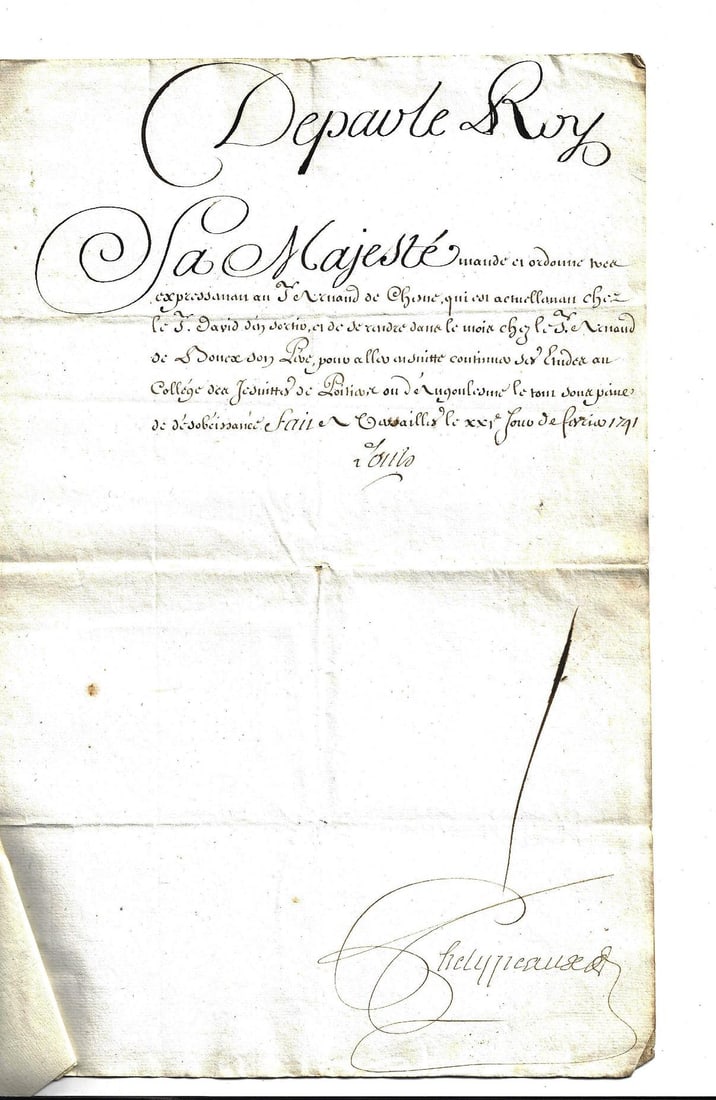 De par le Roy
Sa Majesté mande et ordonne tres
expressement au Sr. Arnaud de Chone, qui est actuellement chez
le Sr. David d'en sortir, et de se rendre dans le mois chez le Sr. Arnaud
de Bouex son Pere, pour aller ensuitte continuer ses Etudes au
College des Jesuittes de Poitiers ou d'Angoulesme le tout sous peine
de désobéissance Fait A Versailles le XXIe. Jour de fevrier 1741
Louis
Phelypeaux